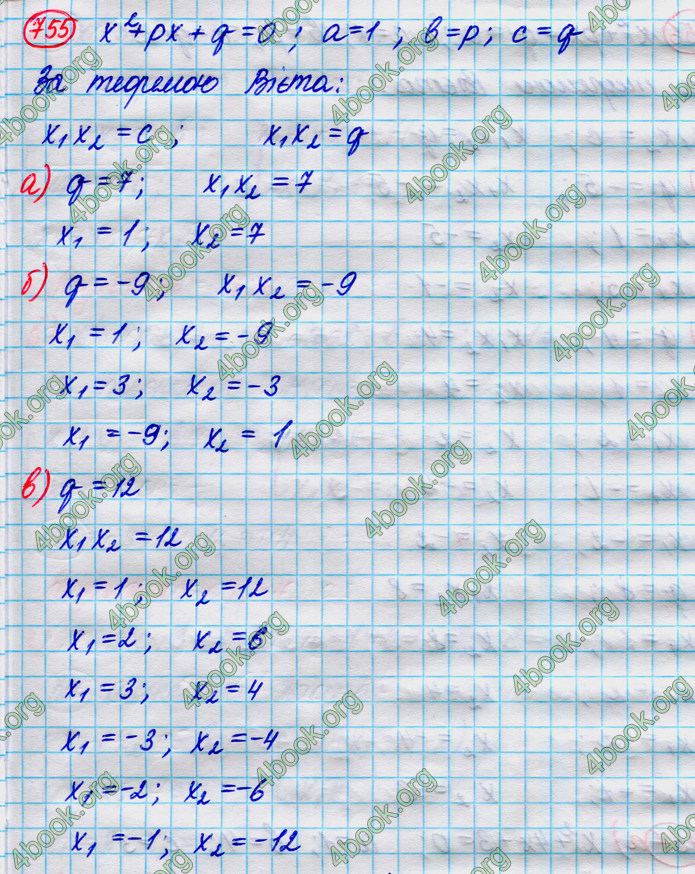 755 x²+px+q=0; a=1; b=p; c=q
За теоремою Вієта:
x₁x₂=c; x₁x₂=q
а) q=7; x₁x₂=7
x₁=1; x₂=7
б) q=-9; x₁x₂=-9
x₁=1; x₂=-9
x₁=3; x₂=-3
x₁=-9; x₂=1
в) q=12
x₁x₂=12
x₁=1; x₂=12
x₁=2; x₂=6
x₁=3; x₂=4
x₁=-3; x₂=-4
x₁=-2; x₂=-6
x₁=-1; x₂=-12
4book.org